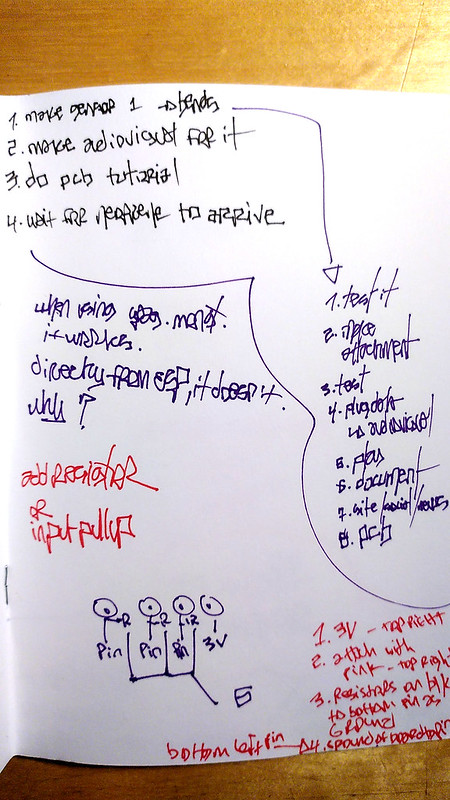 1. make sensor 1 → bends
2. make audiovisual for it
3. do pcb tutorial
4. wait for to arrive
1. test it
2. make
attachment
3. test
4. plug data
↳ audiovisual
5. play
6. document
7. site/social/
8. pcb
when using
it works.
directly from ESP, it doesn't.
why?
add resistor
or
input pullup
R R R
Pin Pin Pin 3V
G
1. 3V - top right
2. attach with
pink - top right
3. Resistors on
to bottom pin as
GROUND
bottom left pin → 4. ground of board to pin